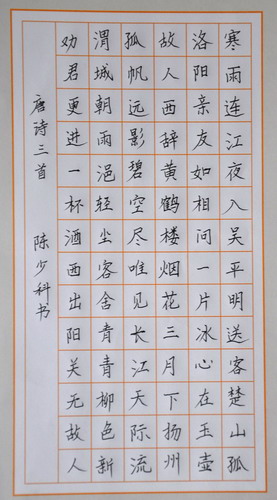 寒雨连江夜入吴平明送客楚山孤
洛阳亲友如相问一片冰心在玉壶
故人西辞黄鹤楼烟花三月下扬州
孤帆远影碧空尽唯见长江天际流
渭城朝雨浥轻尘客舍青青柳色新
劝君更进一杯酒西出阳关无故人
唐诗三首 陈少科书